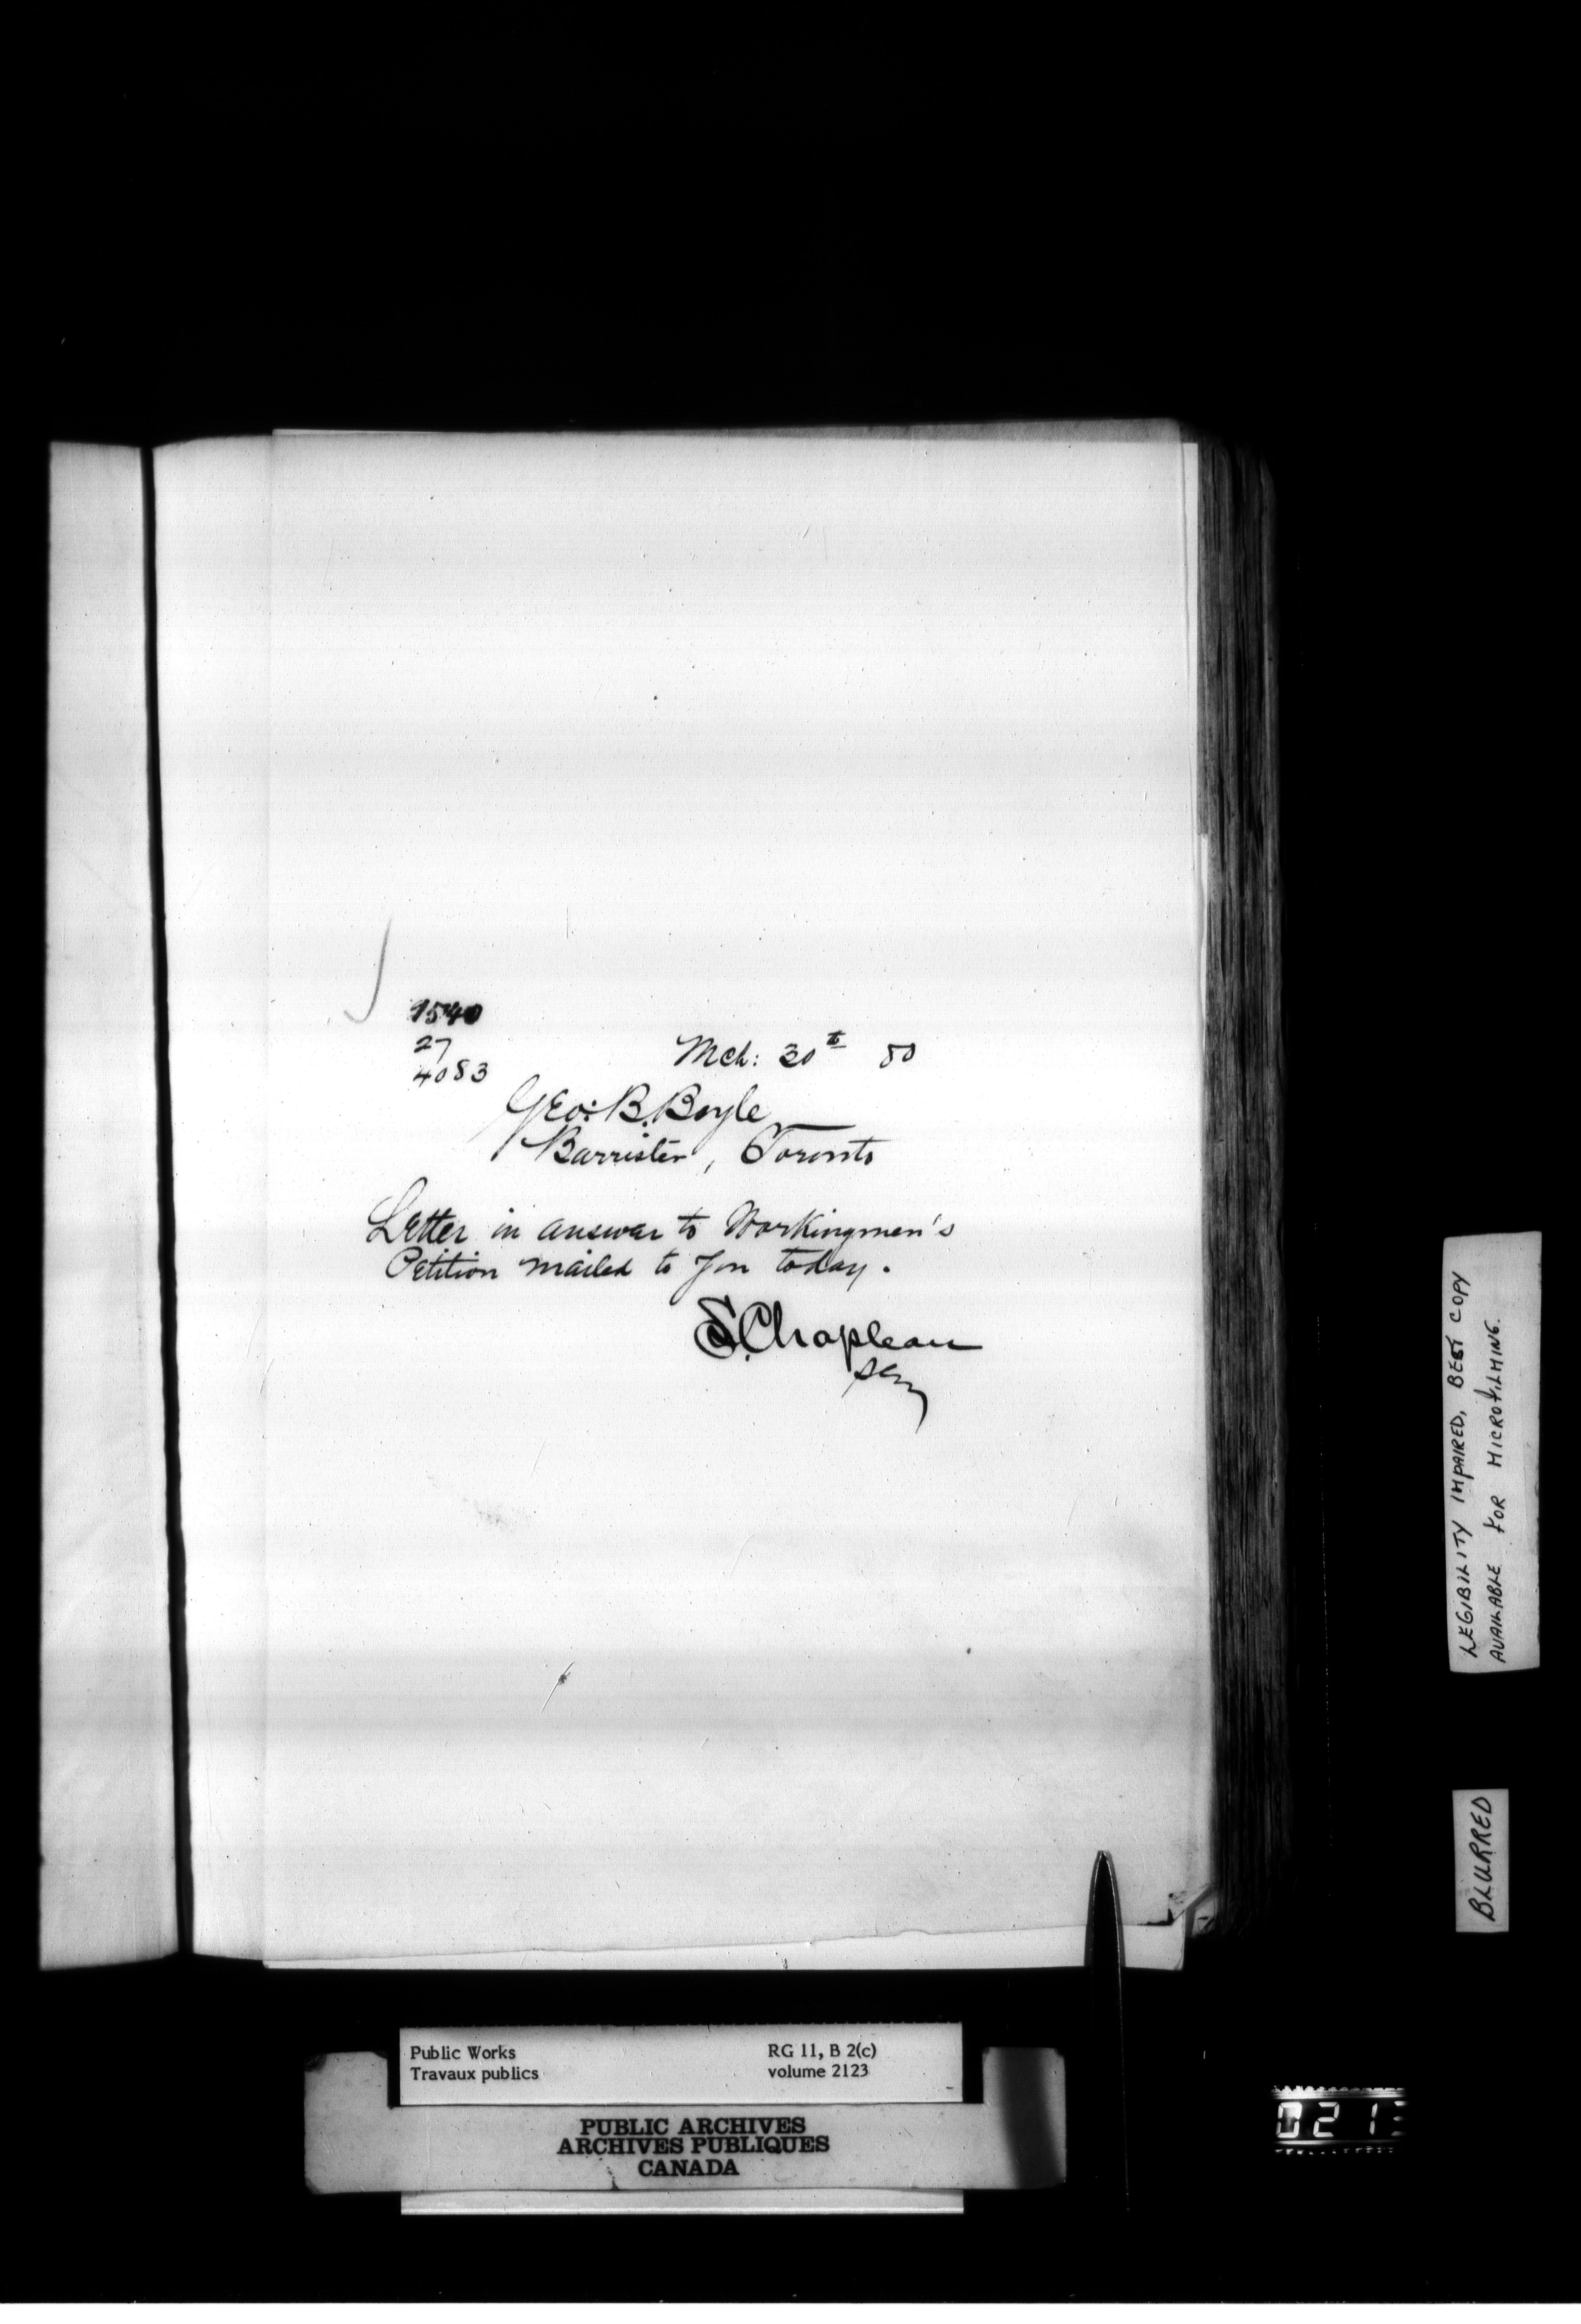 1540
27
4083
Mch: 30th 80
Geo: B. Boyle
Barrister, Toronto
Letter in answer to Workingmen's
Petition mailed to you today.
S. Chapleau
Secy
LEGIBILITY IMPAIRED, BEST COPY
AVAILABLE FOR MICROFILMING.
BLURRED
Public Works
Travaux publics
RG 11, B 2(c)
volume 2123
PUBLIC ARCHIVES
ARCHIVES PUBLIQUES
CANADA